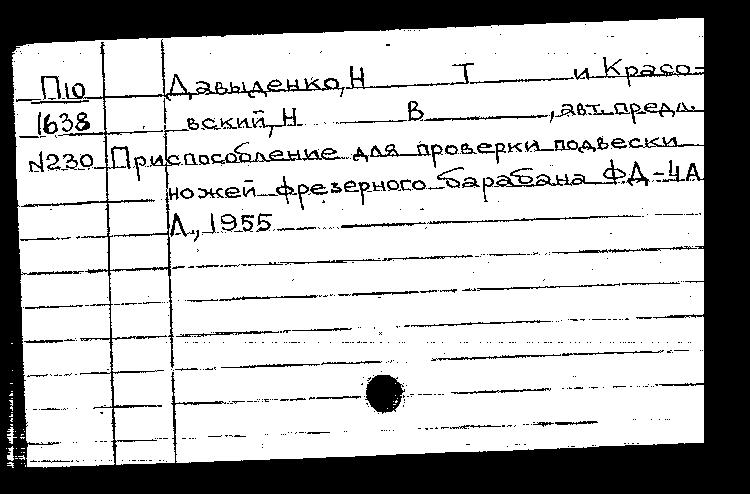 П10 Давыденко, Н Т и Красо-
1638 вский, Н В , авт. предл.
N230 Приспособление для проверки подвески
ножей фрезерного барабана ФД-4А
Л., 1955